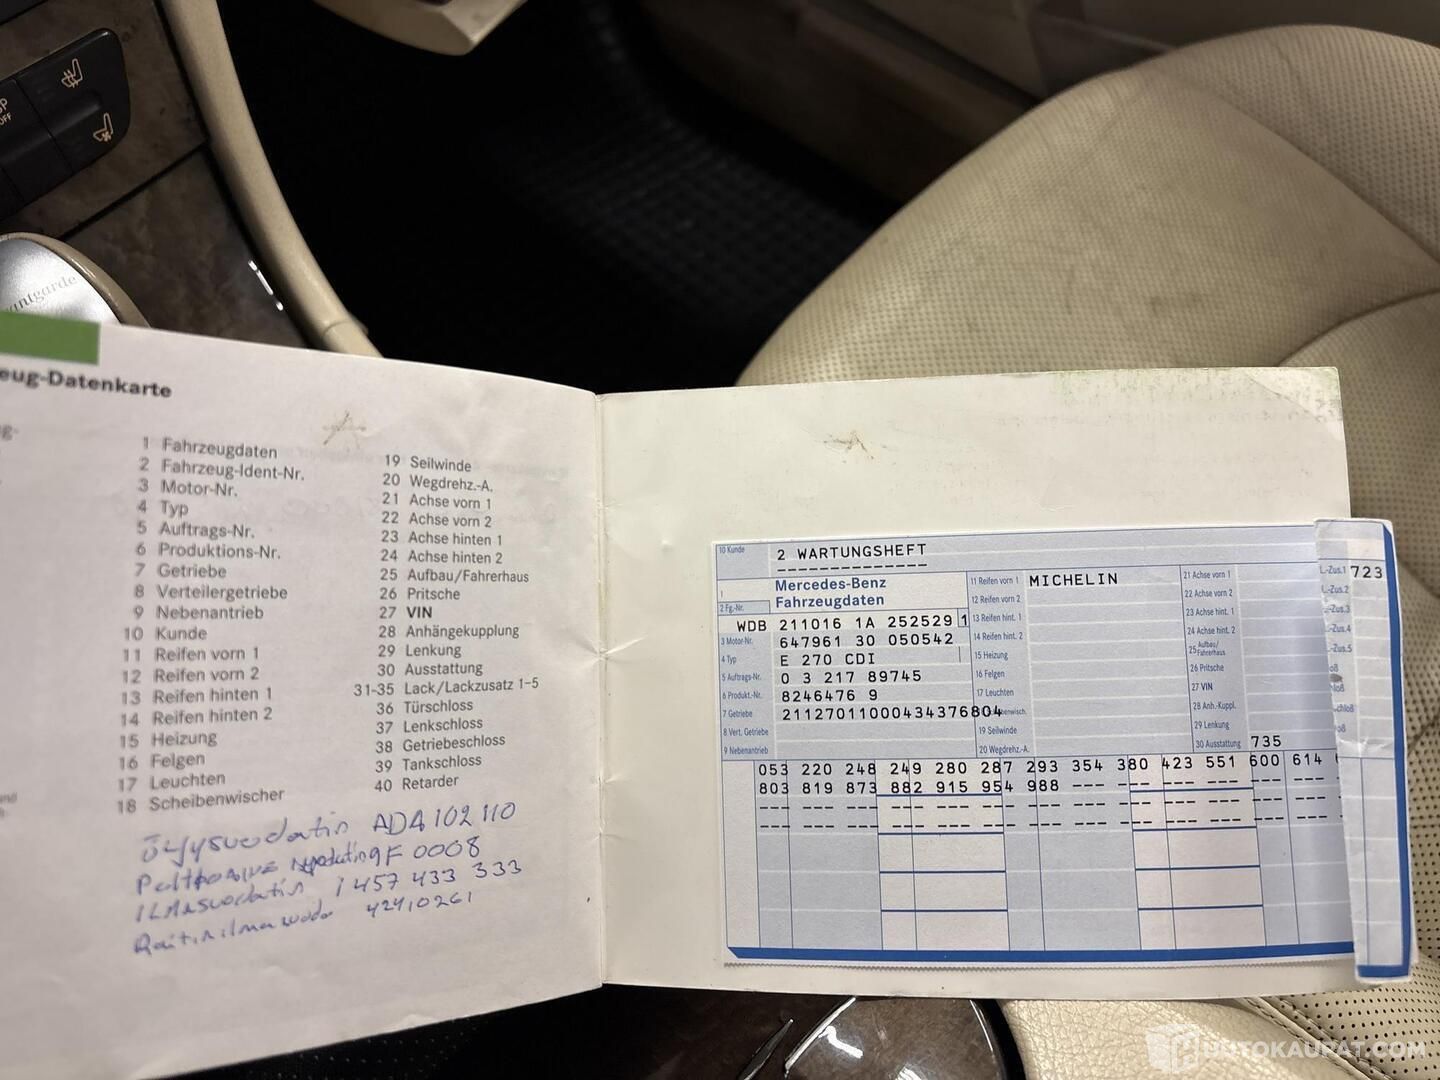 OFF
antgarde
eug-Datenkarte
1 Fahrzeugdaten
2 Fahrzeug-Ident-Nr.
3 Motor-Nr.
4 Typ
5 Auftrags-Nr.
6 Produktions-Nr.
7 Getriebe
8 Verteilergetriebe
9 Nebenantrieb
10 Kunde
11 Reifen vorn 1
12 Reifen vorn 2
13 Reifen hinten 1
14 Reifen hinten 2
15 Heizung
16 Felgen
17 Leuchten
18 Scheibenwischer
19 Seilwinde
20 Wegdrehz.-A.
21 Achse vorn 1
22 Achse vorn 2
23 Achse hinten 1
24 Achse hinten 2
25 Aufbau/Fahrerhaus
26 Pritsche
27 VIN
28 Anhängekupplung
29 Lenkung
30 Ausstattung
31-35 Lack/Lackzusatz 1-5
36 Türschloss
37 Lenkschloss
38 Getriebeschloss
39 Tankschloss
40 Retarder
öljysuodatin ADA102110
F 0008
ILMAsuodatin 1 457 433 333
Raitisilmasuoda 42410261
10 Kunde 2 WARTUNGSHEFT
1 Mercedes-Benz
Fahrzeugdaten
2 Fg.-Nr. WDB 211016 1A 252529 1
3 Motor-Nr. 647961 30 050542
4 Typ E 270 CDI
5 Auftrags-Nr. 0 3 217 89745
6 Produkt.-Nr. 8246476 9
7 Getriebe 21127011000434376804
8 Vert. Getriebe
9 Nebenantrieb
11 Reifen vorn 1 MICHELIN
12 Reifen vorn 2
13 Reifen hint. 1
14 Reifen hint. 2
15 Heizung
16 Felgen
17 Leuchten
19 Seilwinde
20 Wegdrehz.-A.
21 Achse vorn 1
22 Achse vorn 2
23 Achse hint. 1
24 Achse hint. 2
25 Aufbau/Fahrerhaus
26 Pritsche
27 VIN
28 Anh.-Kuppl.
29 Lenkung
30 Ausstattung 735
L.-Zus.1 723
L.-Zus.2
-Zus.3
-Zus.4
-Zus.5
053 220 248 249 280 287 293 354 380 423 551 600 614
803 819 873 882 915 954 988 --- --- --- --- --- ---
HUUTOKAUPAT.COM